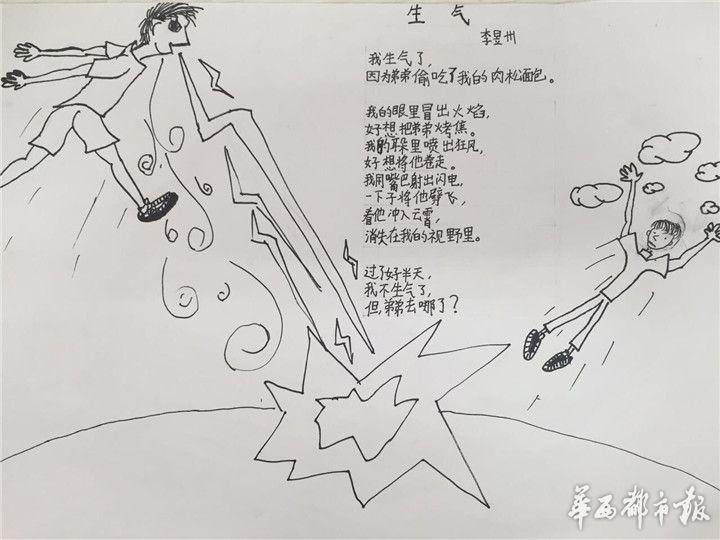 生气
李昱州
我生气了，
因为弟弟偷吃了我的肉松面包。
我的眼里冒出火焰，
好想把弟弟烤焦。
我的鼻里喷出狂风，
好想将他卷走。
我用嘴巴射出闪电，
一下子将他劈飞，
看他冲入云霄，
消失在我的视野里。
过了好半天，
我不生气了，
但，弟弟去哪了？
华西都市报